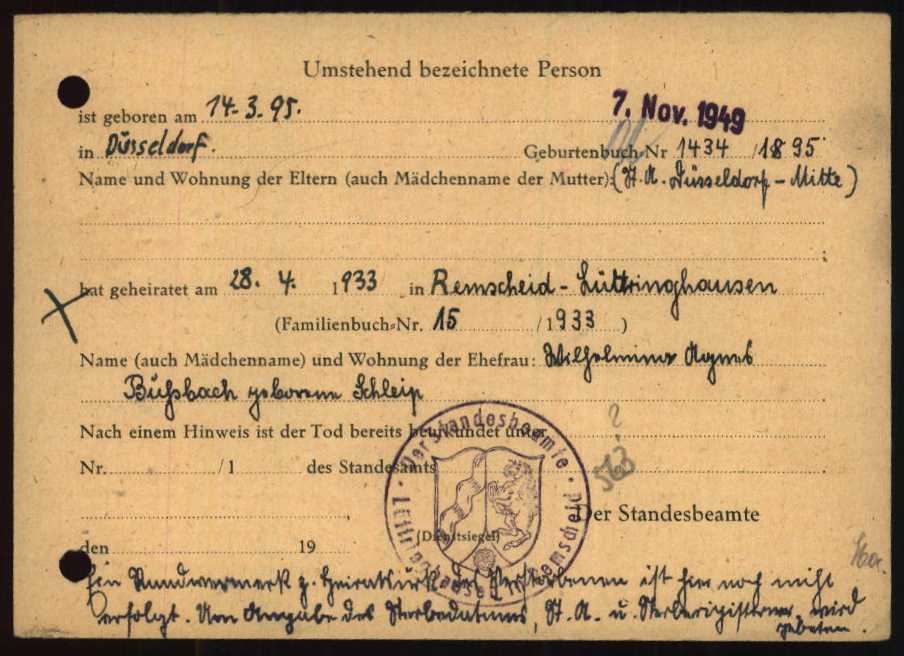 Umstehend bezeichnete Person
ist geboren am 14.3.95.
7. Nov. 1949
in Düsseldorf. Geburtenbuch-Nr 1434 / 1895
Name und Wohnung der Eltern (auch Mädchenname der Mutter): (St. A. Düsseldorf-Mitte)
hat geheiratet am 28. 4. 1933 in Remscheid-Lüttringhausen
(Familienbuch-Nr. 15 / 1933 )
Name (auch Mädchenname) und Wohnung der Ehefrau: Wilhelmine Agnes
Bußbach geborene Schleip
Nach einem Hinweis ist der Tod bereits beurkundet unter ?
Nr. /1 des Standesamts 563
Der Standesbeamte
den 19 (Dienstsiegel)
Der Standesbeamte · Remscheid · Lüttringhausen
Ein Randvermerk z. Heiratsurk. des Verstorbenen ist hier noch nicht
erfolgt. Um Angabe des Sterbedatums, St. A. u. Sterberegisternr. wird
gebeten.